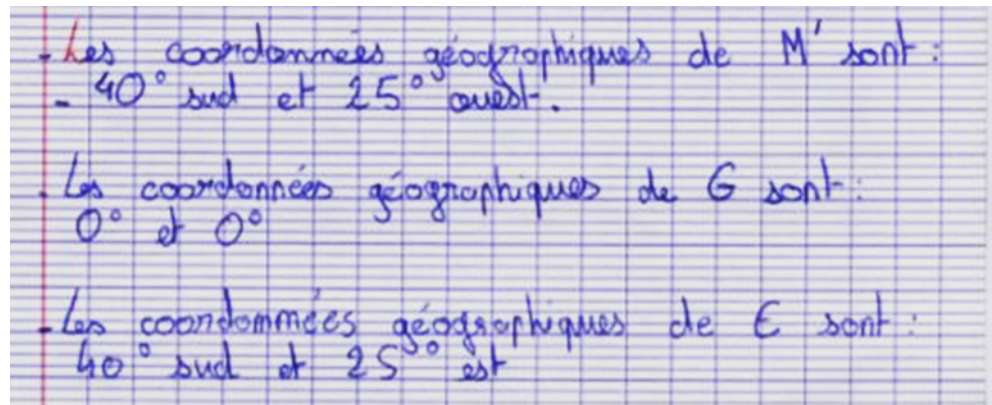 - Les coordonnées géographiques de M' sont :
- 40° sud et 25° ouest.
- Les coordonnées géographiques de G sont :
0° et 0°
- Les coordonnées géographiques de E sont :
40° sud et 25° est